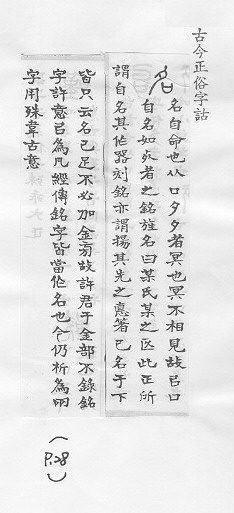 古今正俗字詁
名 名自命也从口夕夕者冥也冥不相見故㠯口
自名如死者之銘旌名曰某氏某之匛此正所
謂自名其作器刻銘亦謂揚其先之悳著己名于下
皆只云名已足不必加金旁故許君于金部不錄銘
字許意㠯為凡經傳銘字皆當作名也今仍析為兩
字用殊韋古意
(P.28)